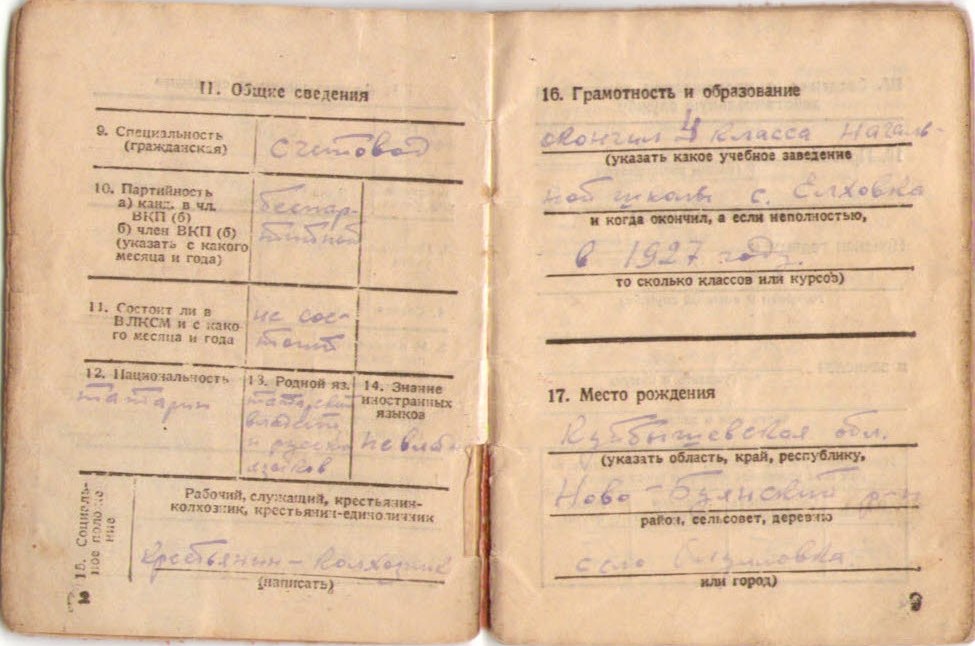 II. Общие сведения
9. Специальность
(гражданская)
счетовод
10. Партийность
а) канд. в чл.
ВКП (б)
б) член ВКП (б)
(указать с какого
месяца и года)
беспар-
тийной
11. Состоит ли в
ВЛКСМ и с како-
го месяца и года
не сос-
тоит
12. Национальность
татарин
13. Родной яз.
татарский
владеет
и русск
языков
14. Знание
иностранных
языков
не влад
15. Социаль-
ное положе-
ние
Рабочий, служащий, крестьянин-
колхозник, крестьянин-единоличник
крестьянин-колхозник
(написать)
8
16. Грамотность и образование
окончил 4 класса началь-
(указать какое учебное заведение
ной школы с. Елховка
и когда окончил, а если неполностью,
в 1927 году.
то сколько классов или курсов)
17. Место рождения
Куйбышевская обл.
(указать область, край, республику,
Ново-Буянский р-н
район, сельсовет, деревню
село
или город)
9